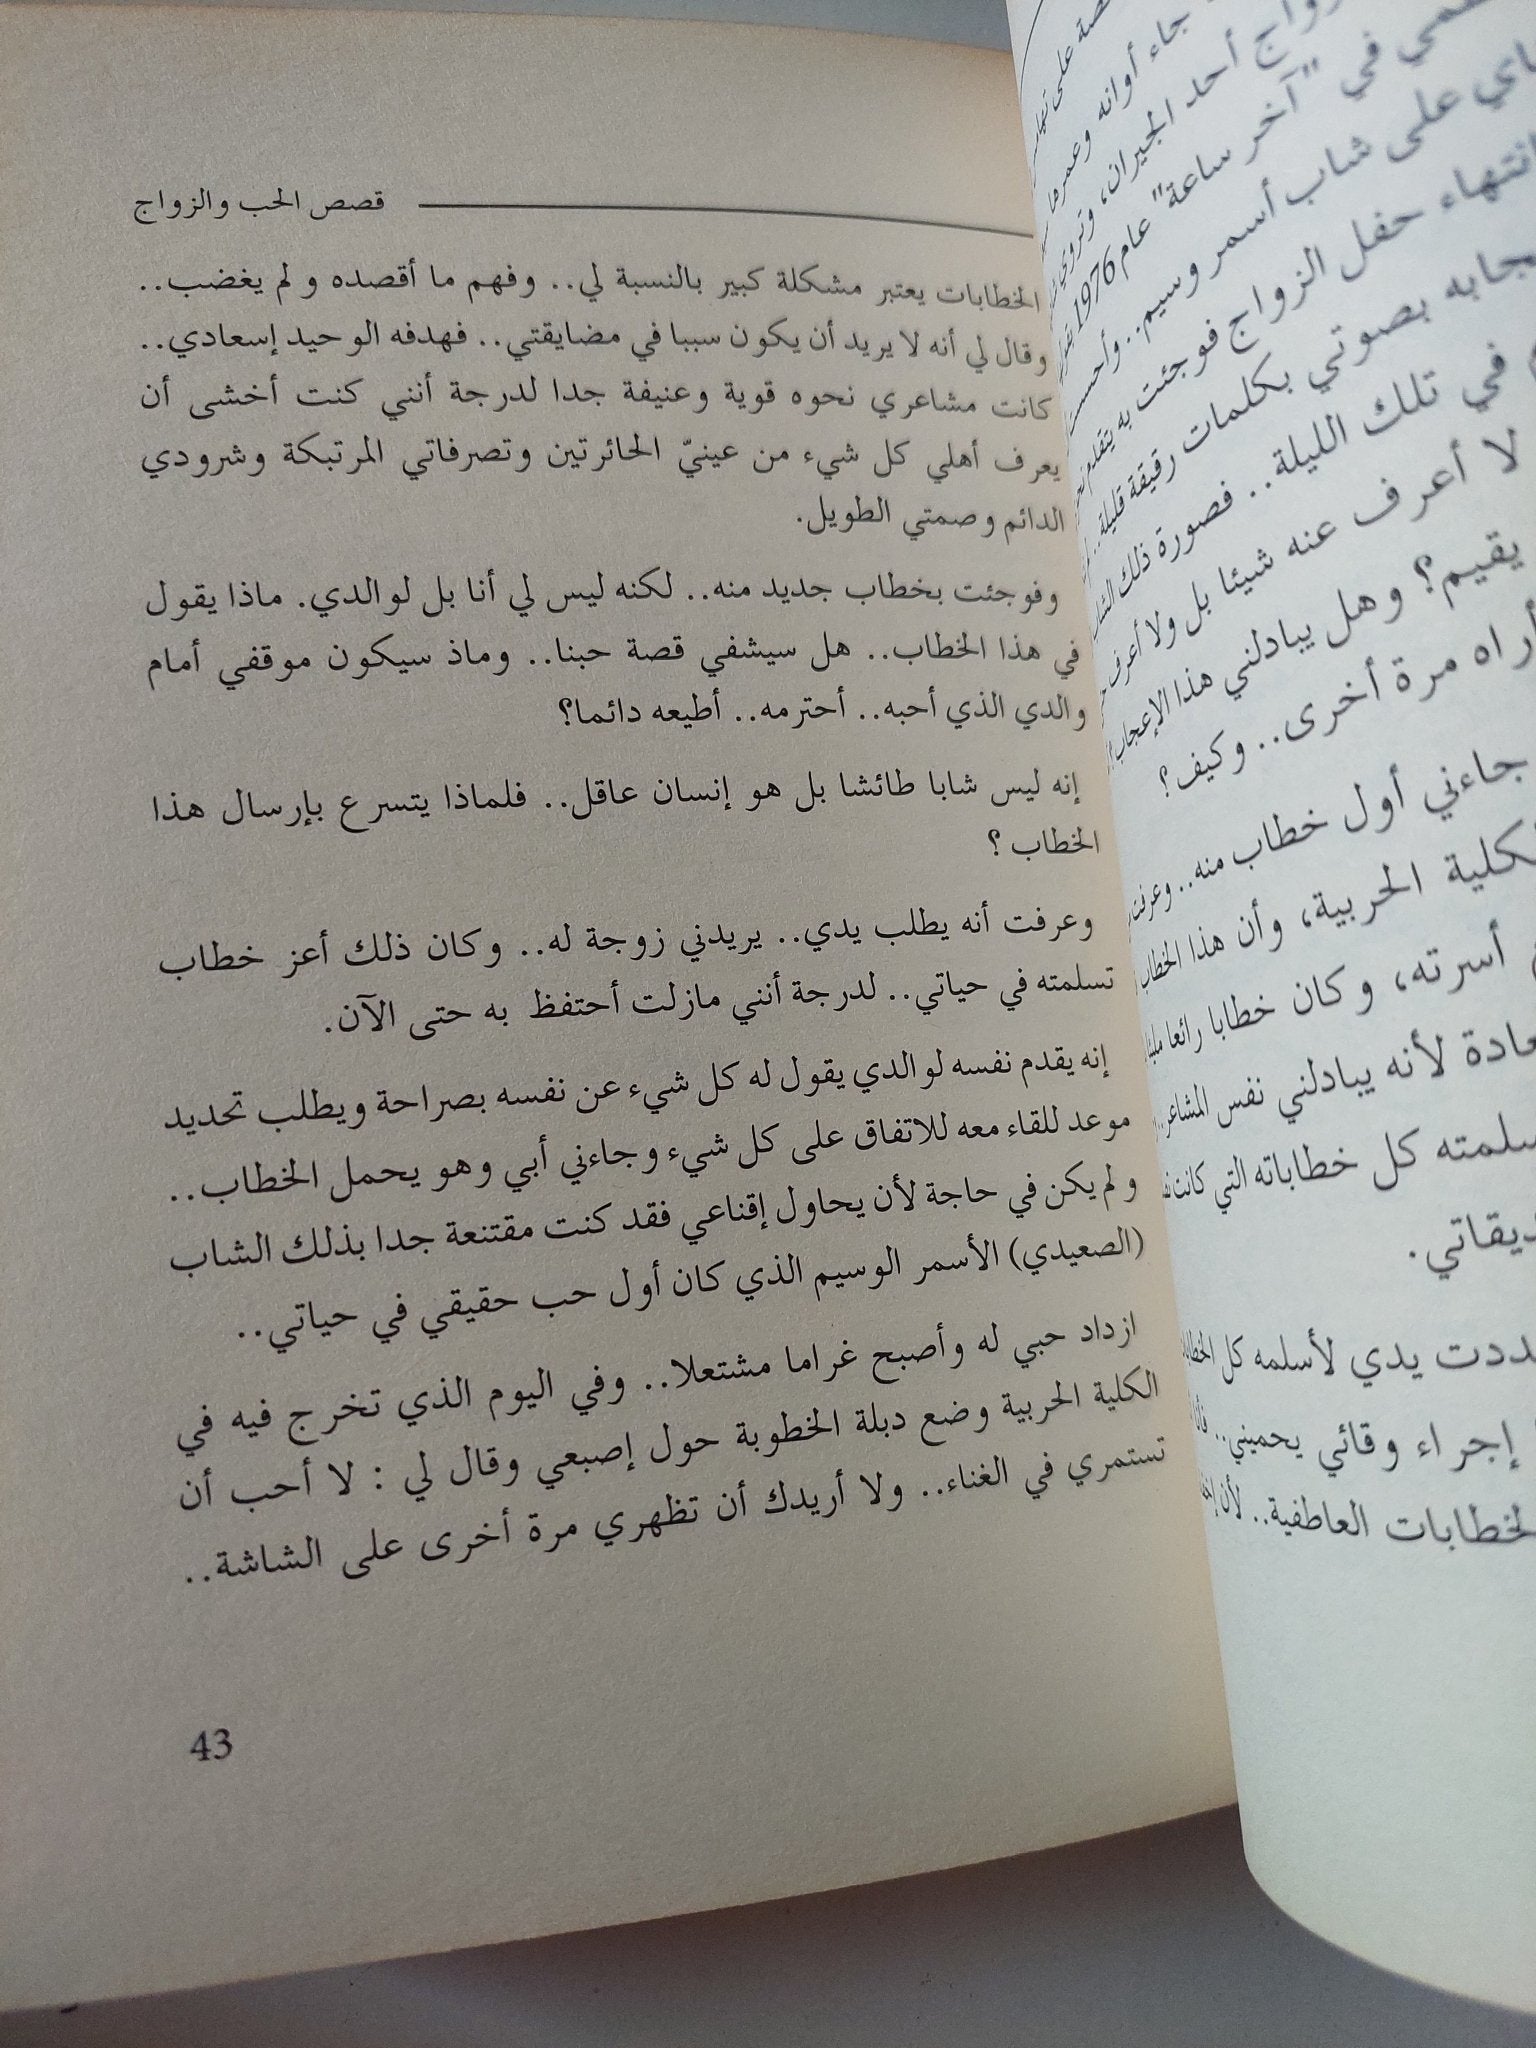 قصص الحب والزواج
الخطابات يعتبر مشكلة كبير بالنسبة لي.. وفهم ما أقصده ولم يغضب..
وقال لي أنه لا يريد أن يكون سببا في مضايقتي.. فهدفه الوحيد إسعادي..
كانت مشاعري نحوه قوية وعنيفة جدا لدرجة أنني كنت أخشى أن
يعرف أهلي كل شيء من عينيّ الحائرتين وتصرفاتي المرتبكة وشرودي
الدائم وصمتي الطويل.
وفوجئت بخطاب جديد منه.. لكنه ليس لي أنا بل لوالدي. ماذا يقول
في هذا الخطاب.. هل سيشفي قصة حبنا.. وماذ سيكون موقفي أمام
والدي الذي أحبه.. أحترمه.. أطيعه دائما؟
إنه ليس شابا طائشا بل هو إنسان عاقل.. فلماذا يتسرع بإرسال هذا
الخطاب ؟
وعرفت أنه يطلب يدي.. يريدني زوجة له.. وكان ذلك أعز خطاب
تسلمته في حياتي.. لدرجة أنني مازلت أحتفظ به حتى الآن.
إنه يقدم نفسه لوالدي يقول له كل شيء عن نفسه بصراحة ويطلب تحديد
موعد للقاء معه للاتفاق على كل شيء وجاءني أبي وهو يحمل الخطاب..
ولم يكن في حاجة لأن يحاول إقناعي فقد كنت مقتنعة جدا بذلك الشاب
(الصعيدي) الأسمر الوسيم الذي كان أول حب حقيقي في حياتي..
ازداد حبي له وأصبح غراما مشتعلا.. وفي اليوم الذي تخرج فيه في
الكلية الحربية وضع دبلة الخطوبة حول إصبعي وقال لي : لا أحب أن
تستمري في الغناء.. ولا أريدك أن تظهري مرة أخرى على الشاشة..
43
جاء أوانه وعمرها
زواج أحد الجيران، وتروي
في "آخر ساعة" عام 1976
على شاب أسمر وسيم.. وأحسست
انتهاء حفل الزواج فوجئت به يتقدم
بصوتي بكلمات رقيقة قليلة..
في تلك الليلة.. فصورة ذلك الشاب
لا أعرف عنه شيئا بل ولا أعرف
يقيم؟ وهل يبادلني هذا الإعجاب
أراه مرة أخرى.. وكيف؟
جاءني أول خطاب منه.. وعرفت
الحربية، وأن هذا الخطاب
أسرته، وكان خطابا رائعا
لأنه يبادلني نفس المشاعر..
كل خطاباته التي كانت
يدي لأسلمه كل
إجراء وقائي يحميني..
العاطفية.. لأن